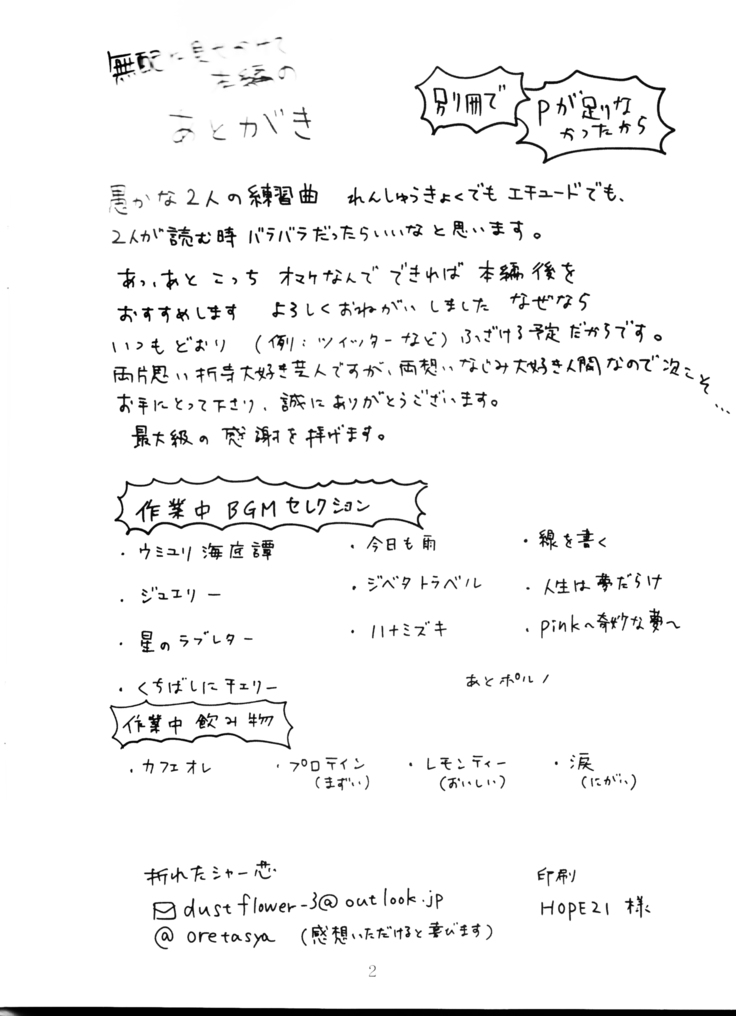 無配に見せかけて
本編の
あとがき
別冊で
Pが足りな
かったから
愚かな2人の練習曲 れんしゅうきょくでも エチュードでも、
2人が読む時 バラバラだったらいいなと思います。
あっ、あと こっち オマケなんで できれば 本編後を
おすすめします よろしくおねがいしました なぜなら
いつもどおり (例:ツイッターなど)ふざける予定だからです。
両片思い折寺大好き芸人ですが、両想いなじみ大好き人間なので次こそ…
お手にとって下さり、誠にありがとうございます。
最大級の感謝を捧げます。
作業中BGMセレクション
・ウミユリ海底譚
・今日も雨
・線を書く
・ジュエリー
・ジベタトラベル
・人生は夢だらけ
・星のラブレター
・ハナミズキ
・pink〜奇妙な夢〜
・くちばしにチェリー
あとポルノ
作業中飲み物
・カフェオレ
・プロテイン
(まずい)
・レモンティー
(おいしい)
・涙
(にがい)
折れたシャー芯
dustflower-3@outlook.jp
@ oretasya (感想いただけると喜びます)
印刷
HOPE21 様
2